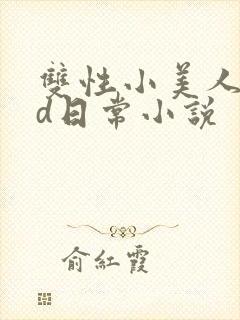 雙性小美人
d日常小說
俞紅霞